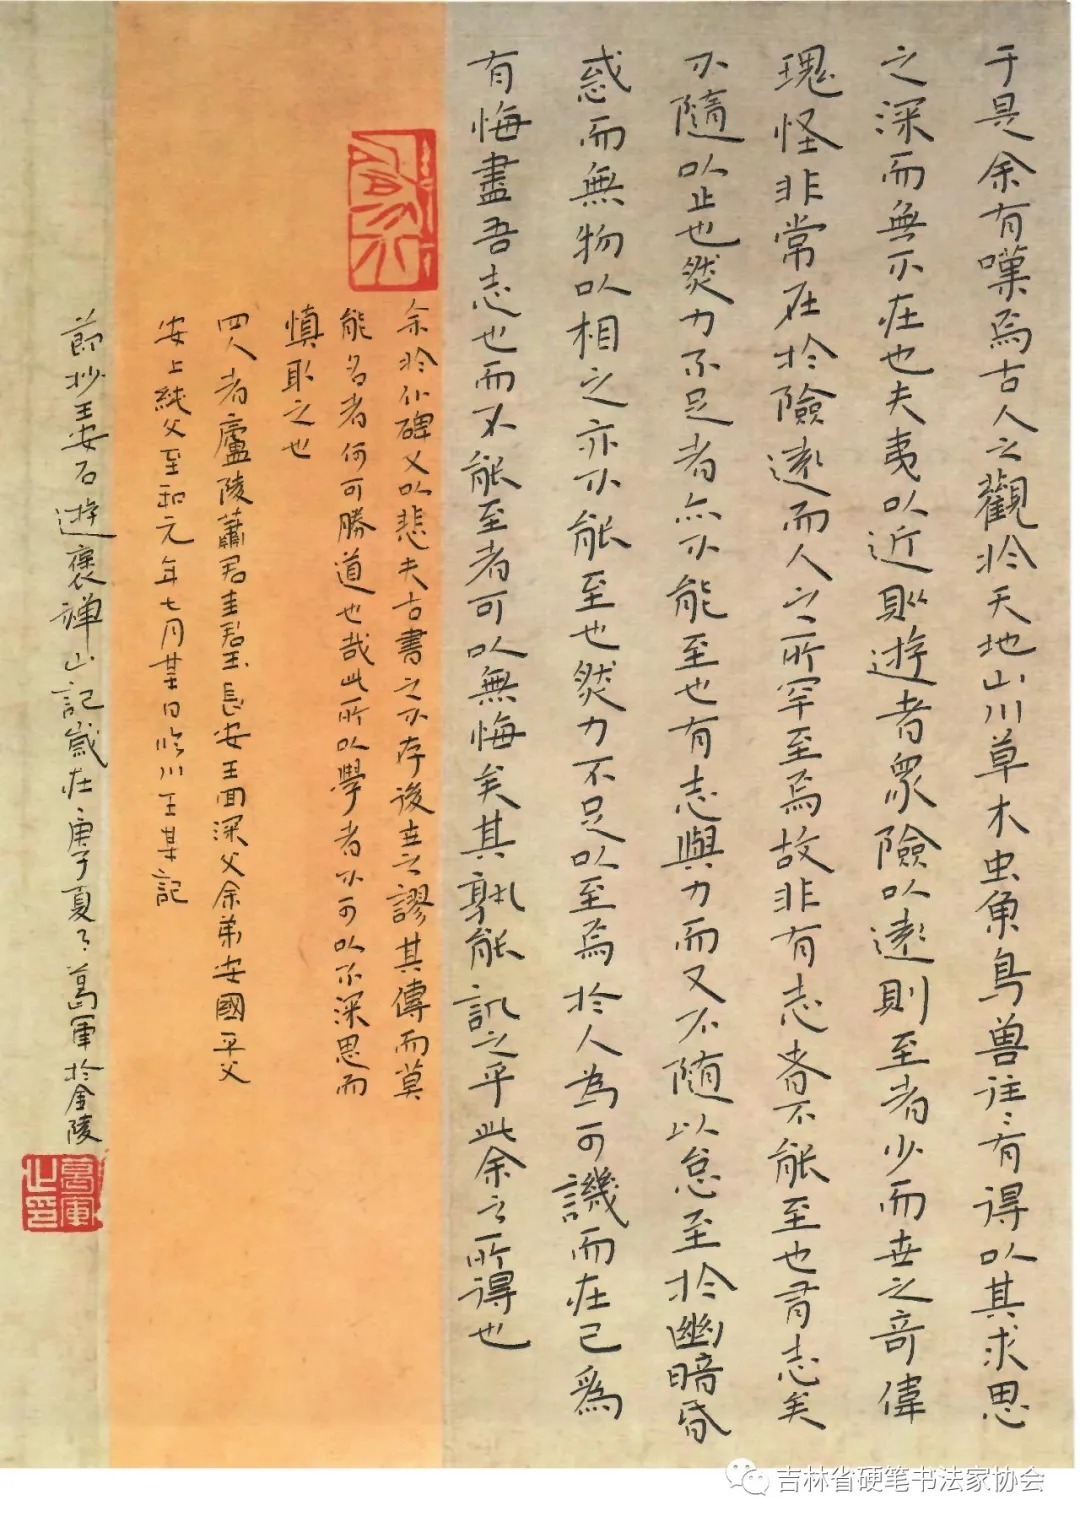 于是余有嘆焉古人之觀於天地山川草木虫魚鳥獸往〻有得以其求思
之深而無不在也夫夷以近則遊者衆險以遠則至者少而世之奇偉
瑰怪非常在於險遠而人之所罕至焉故非有志者不能至也有志矣
不隨以止也然力不足者亦不能至也有志與力而又不随以怠至於幽暗昏
惑而無物以相之亦不能至也然力不足以至焉於人為可譏而在己為
有悔盡吾志也而不能至者可以無悔矣其孰能訊之乎此余之所得也
余於仆碑又以悲夫古書之不存後世之謬其傳而莫
能名者何可勝道也哉此所以學者不可以不深思而
慎取之也
四人者廬陵蕭君圭君玉長安王回深父余弟安國平父
安上純父至和元年七月某日臨川王某記
節抄王安石遊褒禅山記歲在庚子夏〻葛軍於金陵
葛軍之印
吉林省硬笔书法家协会